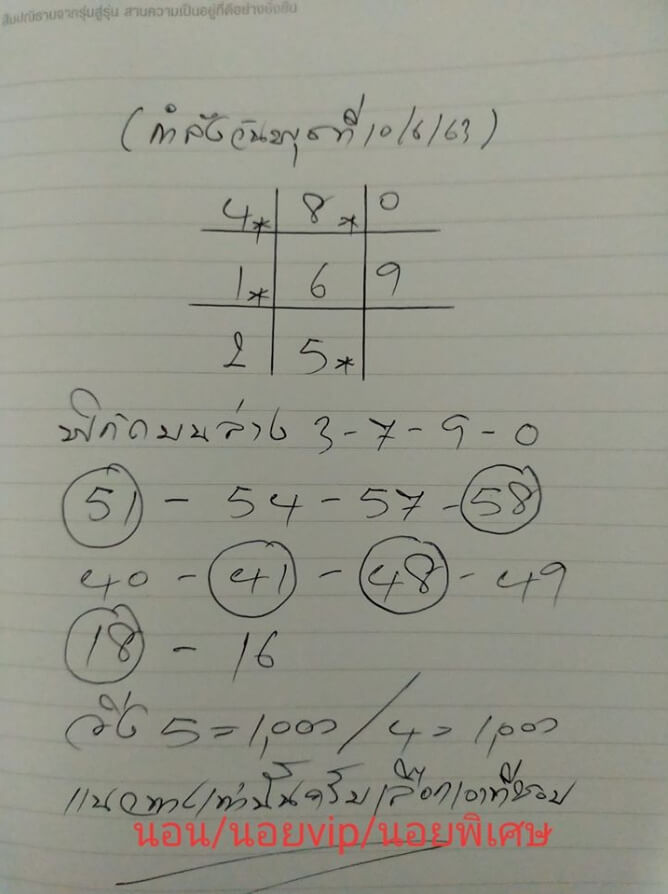 สัมปณิธานจากรุ่นสู่รุ่น สานความเป็นอยู่ที่ดีอย่างยั่งยืน
(กำลังวันพุธที่ 10/6/63)
4* 8* 0
1* 6 9
2 5*
พิกัดบนล่าง 3-7-9-0
51 - 54 - 57 - 58
40 - 41 - 48 - 49
18 - 16
วิ่ง 5 = 1,000 / 4 = 1,000
แนวทางเท่านั้นครับเลือกเอาที่ชอบ
นอน/นอยvip/นอยพิเศษ